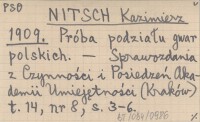 PSB
NITSCH Kazimierz
1909. Próba podziału gwar
polskich. — Sprawozdania
z Czynności i Posiedzeń Aka-
demii Umiejętności (Kraków)
t. 14, nr 8, s. 3-6.